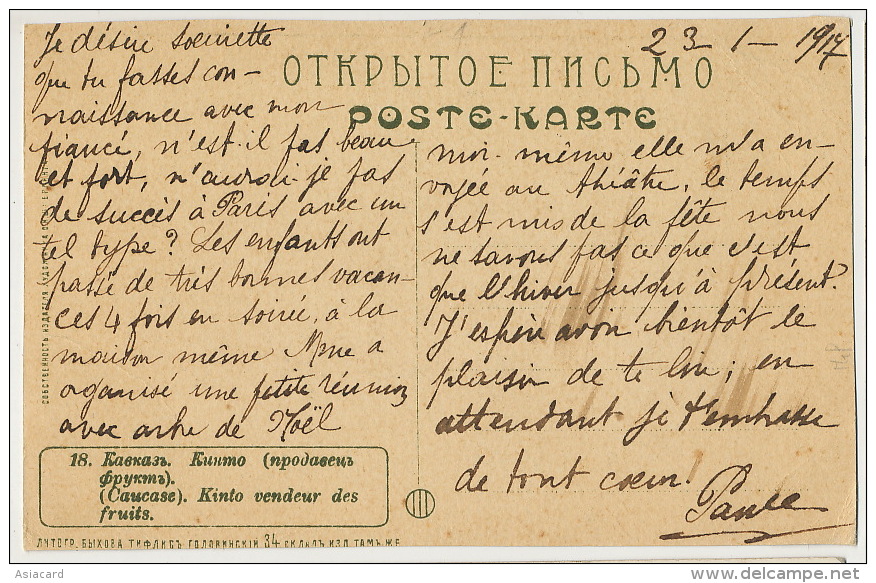 23 1 - 1917
ОТКРЫТОЕ ПИСЬМО
POSTE-KARTE
Je désire soeurette
que tu fasses con-
naissance avec mon
fiancé, n'est-il pas beau
et fort, n'aurai-je pas
de succès à Paris avec un
tel type? Les enfants ont
passé de très bonnes vacan-
ces 4 fois en soirée, à la
maison même Mme a
organisé une petite réunion
avec arbre de Noël
moi-même elle m'a en-
vojée au théâtre, le temps
s'est mis de la fête nous
ne savons pas ce que c'est
que l'hiver jusqu'à présent.
J'espère avoir bientôt le
plaisir de te lire; en
attendant je t'embrasse
de tout coeur!
18. Кавказъ. Кинто (продавецъ
фруктъ).
(Caucase). Kinto vendeur des
fruits.
ЛИТОГР. БЫХОВА ТИФЛИСЪ ГОЛОВИНСКІЙ 34 СКЛАДЪ ИЗД. ТАМЪ ЖЕ
СОБСТВЕННОСТЬ ИЗДАТЕЛЯ
Asiacard
www.delcampe.net